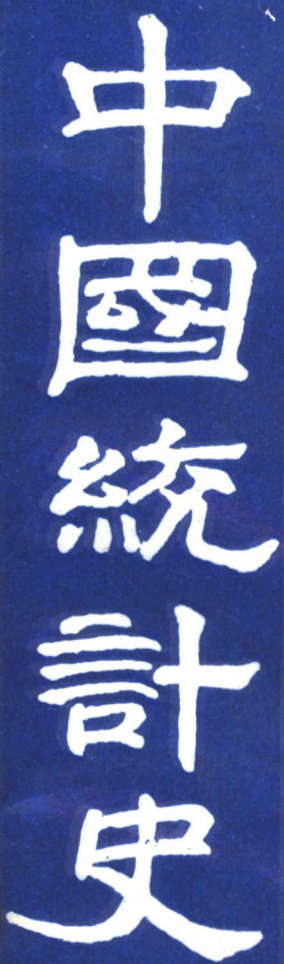 中國統計史